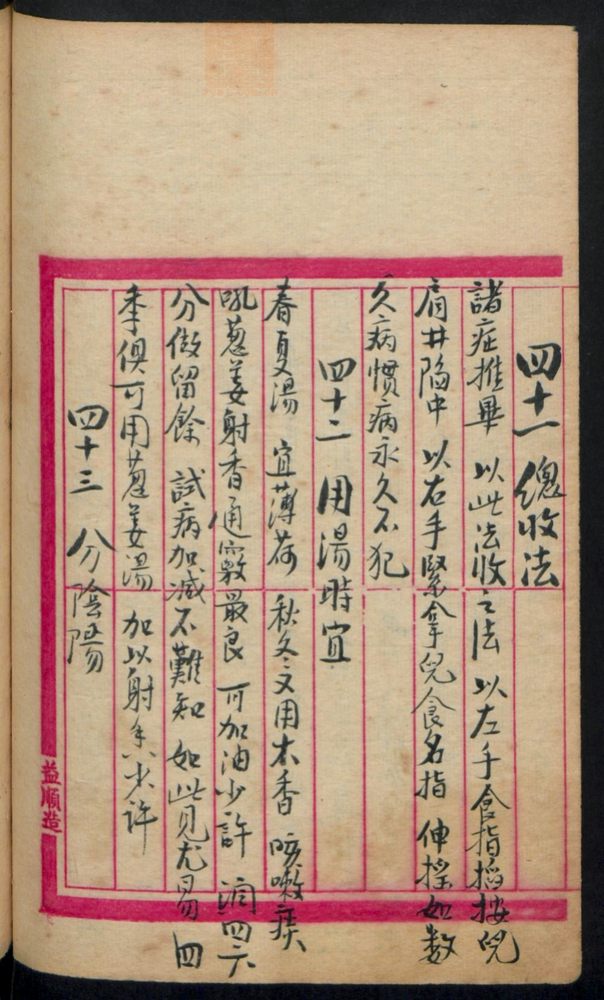 四十一 總收法
諸症推畢 以此法收之法 以左手食指掐按兒
肩井陷中 以右手緊拿兒食名指 伸摇如数
久病慣病永久不犯
四十二 用湯時宜
春夏湯 宜薄荷 秋冬又用木香 咳嗽痰
吼葱姜射香通竅最良 可加油少許 泪四六
分做留餘 試病加减不難知 如此見尤易 四
季俱可用葱姜湯 加以射香少許
四十三 分陰陽
益順造